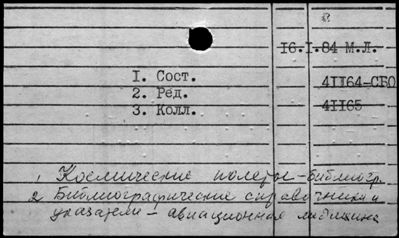 16.I.84 М.Л.
1. Сост. 41164-СБО
2. Ред. 41165
3. Колл.
1 Космические полеты - библиогр.
2 Библиографические справочники и
указатели - авиационная медицина